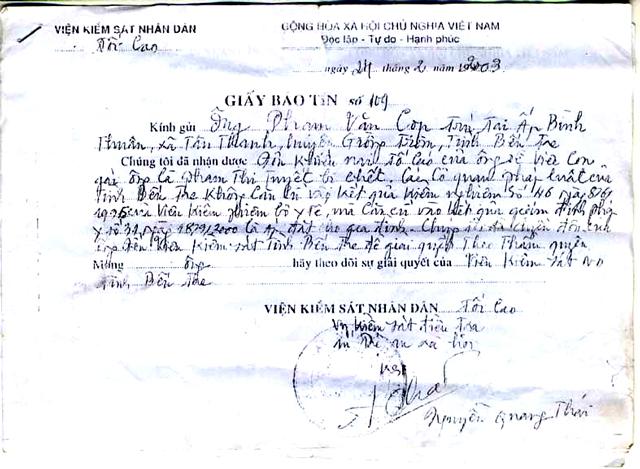 VIỆN KIỂM SÁT NHÂN DÂN
Tối Cao
CỘNG HÒA XÃ HỘI CHỦ NGHĨA VIỆT NAM
Độc lập - Tự do - Hạnh phúc
ngày 24 tháng 2 năm 2003
GIẤY BÁO TIN số 109
Kính gửi Ông Phạm Văn Cọp Trú Tại Ấp Bình
Thuận, xã Tân Thanh, huyện Giồng Trôm, Tỉnh Bến Tre
Chúng tôi đã nhận được Đơn Khiếu nại tố cáo của ông về việc con
gái ông là Phạm Thị Tuyết bị chết. Các cơ quan pháp luật của
Tỉnh Bến Tre không căn cứ vào kết quả kiểm nghiệm số 46
của Viện Kiểm nghiệm bộ y tế, mà căn cứ vào kết quả giám định pháp
y số gia đình. chuyển đơn của
ông đến Viện Kiểm sát Tỉnh Bến Tre để giải quyết theo thẩm quyền
Mong ông hãy theo dõi sự giải quyết của Viện Kiểm sát ND
Tỉnh Bến Tre
VIỆN KIỂM SÁT NHÂN DÂN Tối Cao
Vụ Kiểm sát điều tra
án xã hội
Nguyễn Quang Thái